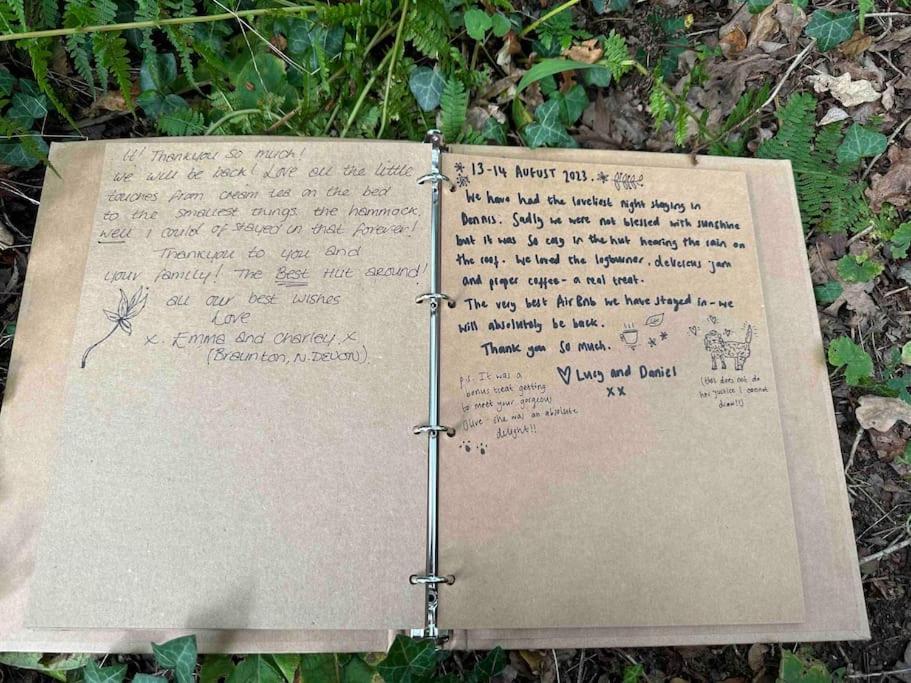 it! Thankyou so much!
we'll be back! Love all the little
touches from cream tea on the bed
to the smallest things the hammock,
well I could of stayed in that forever!
Thankyou to you and
your family! The Best Hut around!
all our best wishes
Love
x. Emma and Charley x
(Braunton, N.DEVON)
13-14 AUGUST 2023.
We have had the loveliest night staying in
Dennis. Sadly we were not blessed with sunshine
but it was so cosy in the hut hearing the rain on
the roof. We loved the logburner, delicious jam
and proper coffee - a real treat.
The very best AirBnb we have stayed in - we
will absolutely be back.
Thank you so much.
Lucy and Daniel
xx
(this does not do
her justice I cannot
draw!!)
p.s. It was a
bonus treat getting
to meet your gorgeous
Olive - she was an absolute
delight!!